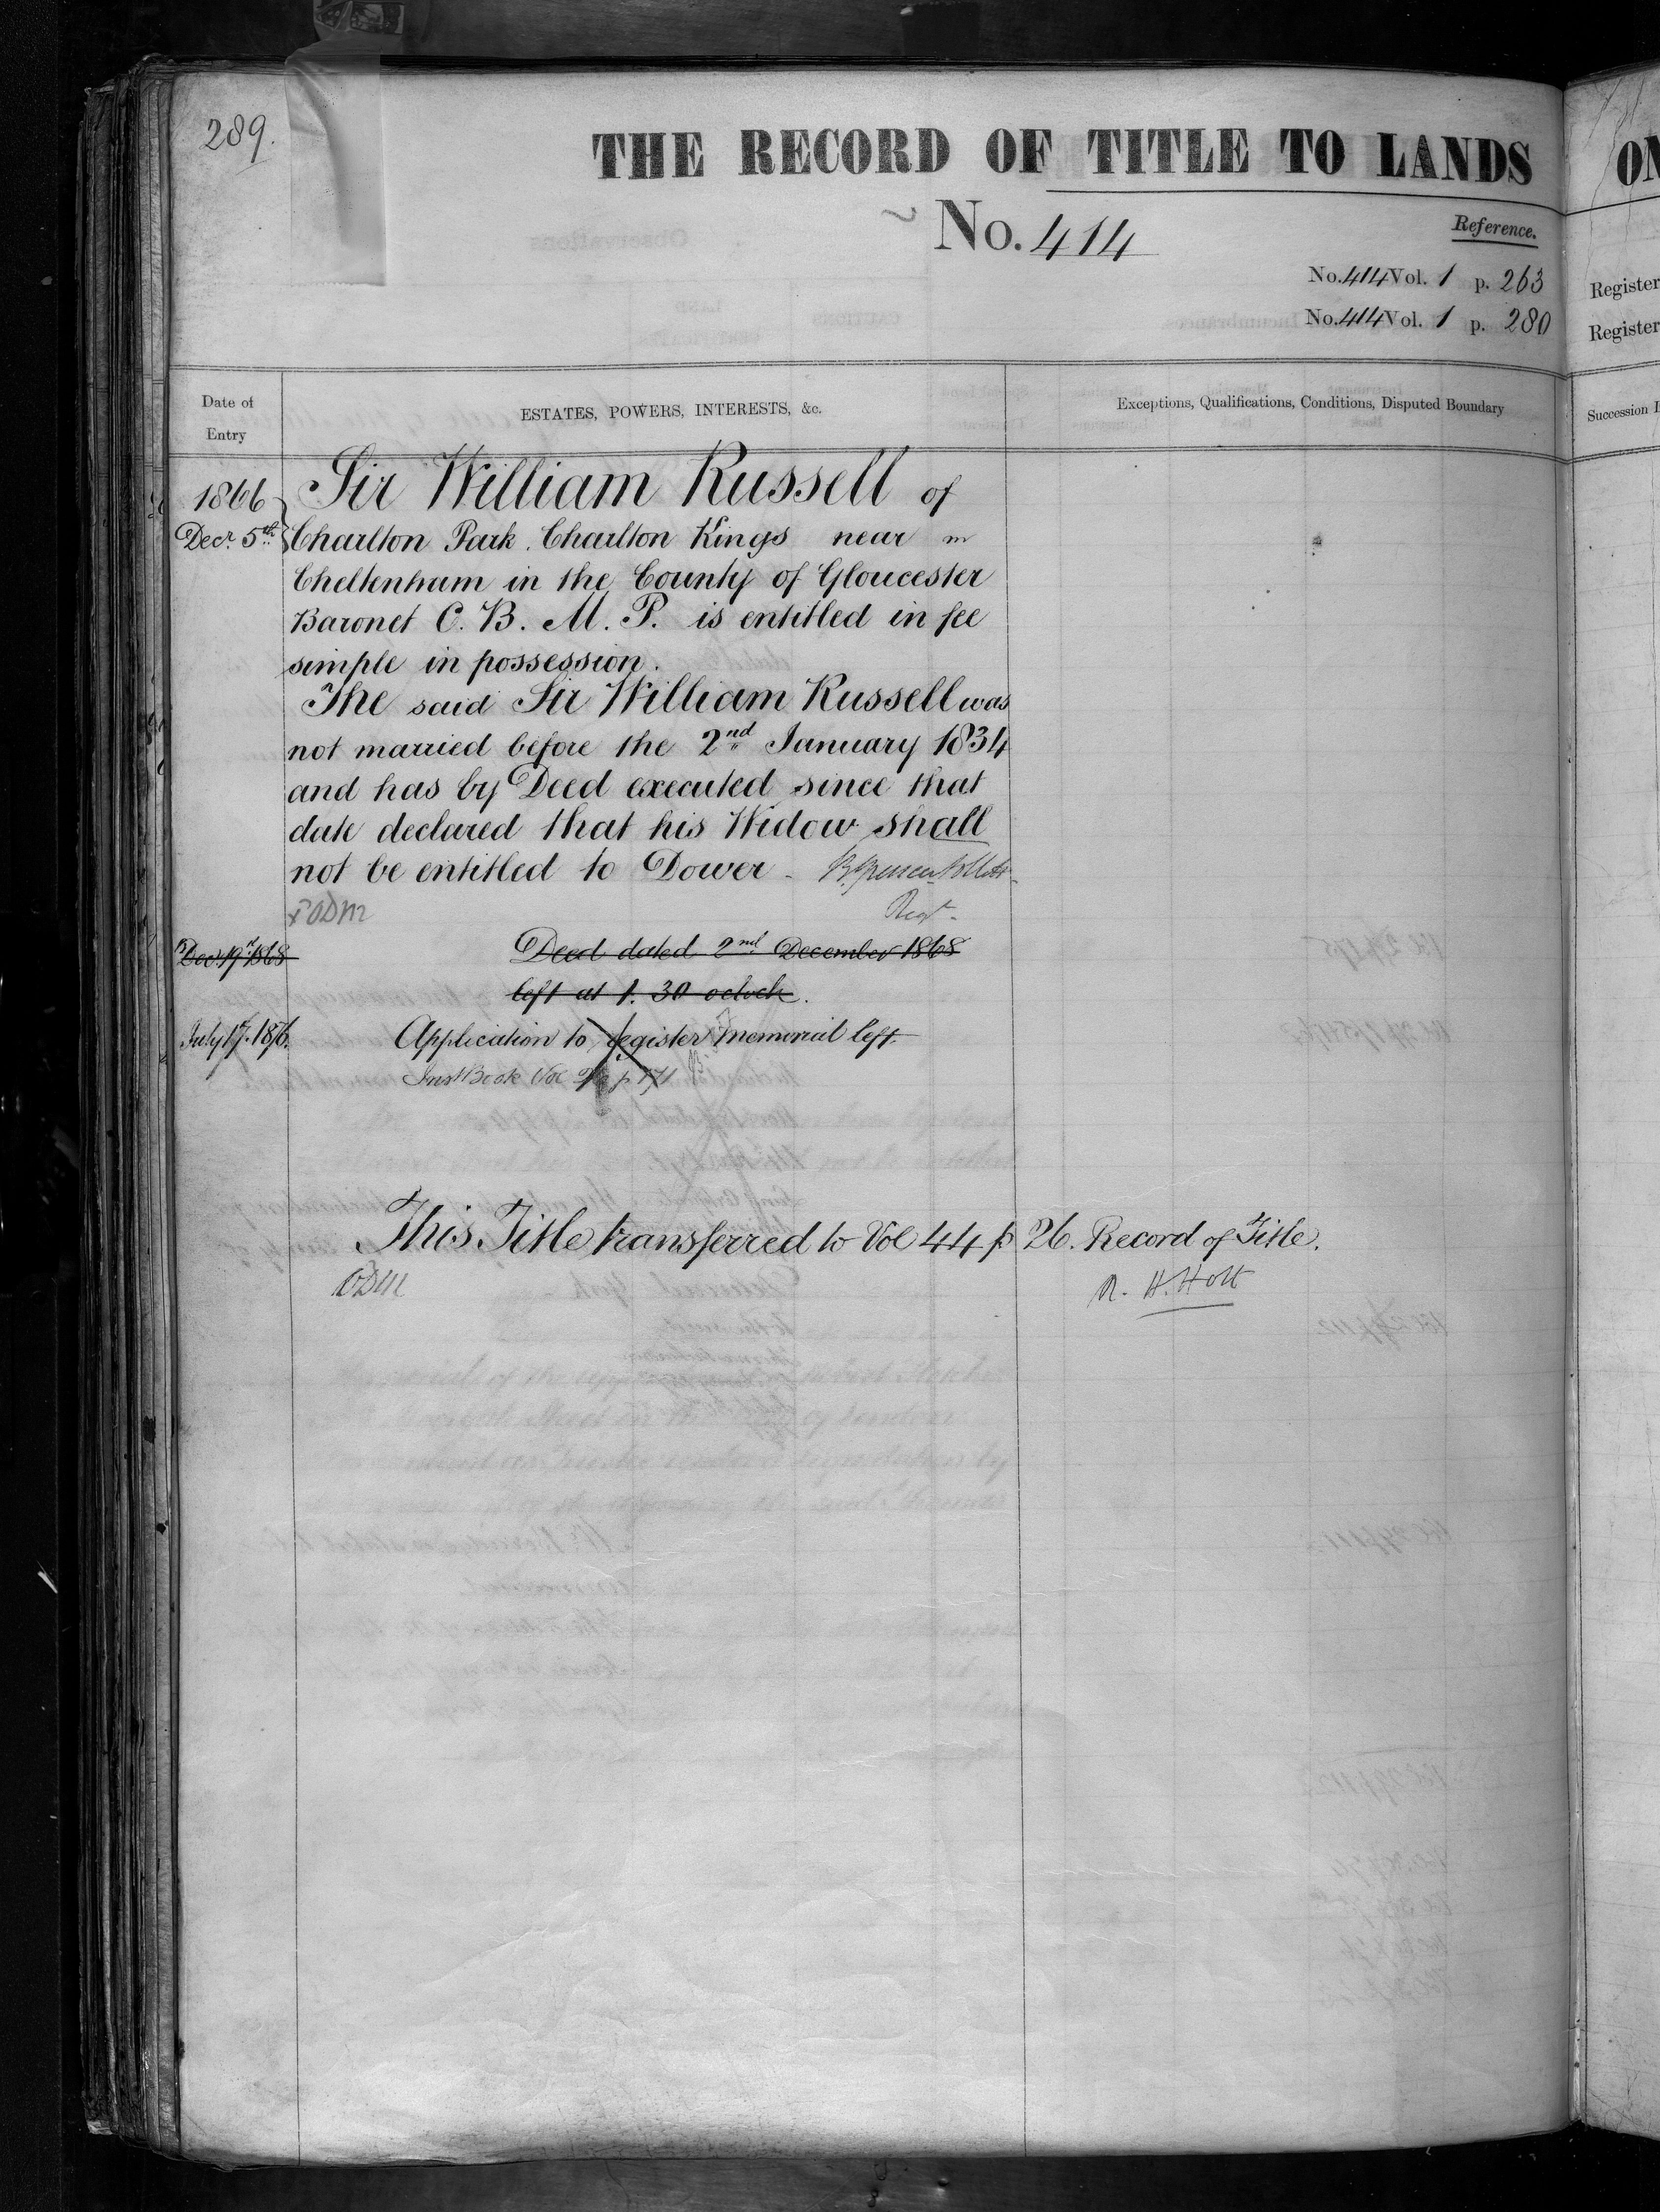 289.
THE RECORD OF TITLE TO LANDS
No. 414
Reference.
No. 414 Vol. 1 p. 263
No. 414 Vol. 1 p. 280
Date of Entry
ESTATES, POWERS, INTERESTS, &c.
Exceptions, Qualifications, Conditions, Disputed Boundary
1866
Decr. 5th
Sir William Russell of
Charlton Park, Charlton Kings near
Cheltenham in the County of Gloucester
Baronet C. B. M. P. is entitled in fee
simple in possession.
The said Sir William Russell was
not married before the 2nd January 1834
and has by Deed executed since that
date declared that his Widow shall
not be entitled to Dower
Regr.
ODM
Decr. 19th 1868
Deed dated 2nd December 1868
left at 1. 30 oclock.
July 17. 1876.
Application to register memorial left.
Inst Book Vol
This Title transferred to Vol 44 p 26. Record of Title.
ODM
R. H. Holt
ON
Register
Register
Succession